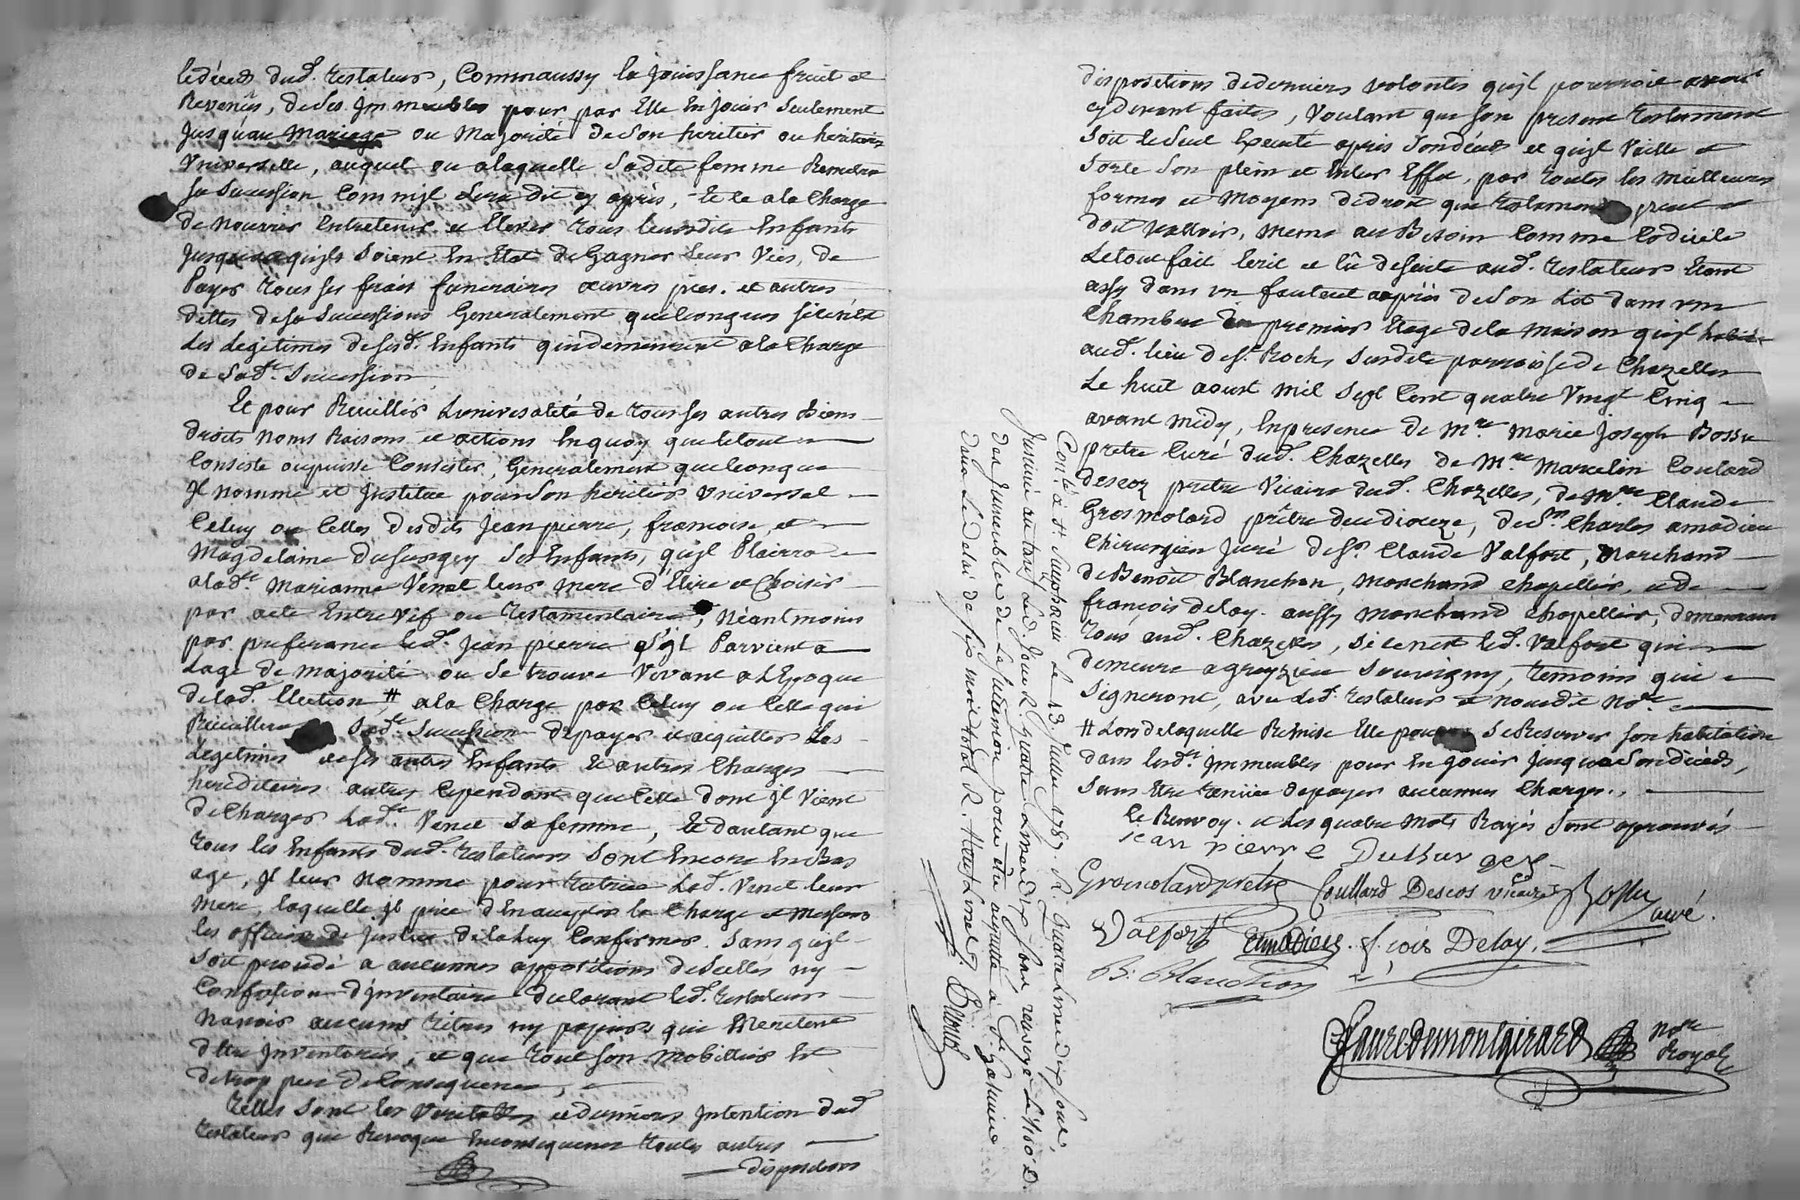 ledécès dud. testateur, Comm aussy la jouissance fruit et
Revenus, de ses Immeubles pour par Elle En jouir seulement
jusqu'au Mariage ou Majorité de son heritier ou heritiere
Universelle, auquel ou alaquelle sadite femme Remettra
sa succession Comm'isl sera dit cy après, Et ce ala Charge
de nourrir Entretenir et Elever tous lesusdits Enfants
jusquace quisls soient En Etat de Gagner leur Vies, de
Payer tous ses frais funeraires œuvres pies. et autres
dettes de sa succession Generalement quelconques si cen'est
Les Legitimes de sesd. Enfants qui demeurent ala Charge
de sad.te succession
Et pour Recuillir Luniversalité de tous ses autres Biens
droits noms Raisons et actions En quoy que le tout
Consiste ou puisse Consister, Generalement quelconque
Jl nomme et Jnstitue pour son heritier Universel
Celuy ou Celles desdits jean pierre, francoise, et
Magdelaine Dusurgey ses Enfants, qu'jl Plairra
alad.te Marianne Venet leur mere d'Elire et Choisir
par acte Entre Vif ou testamentaire, Néantmoins
par preferance led. jean pierre s'jl Parvient a
Lage de Majorité ou se trouve Vivant a l'Epoque
de lad. Election # ala Charge par Celuy ou Celle qui
Recuillera sad.te succession de payer et acquitter Les
Légitimes de ses autres Enfants Et autres Charges
héréditaires autres Cependant que Celle dont jl Vient
de Charger Lad.te Venet sa femme, Et dautant que
tous les Enfants dud. testateur sont Encore En bas
age, jl leur nomme pour tutrice Lad. Venet leur
Mere, laquelle jl prie d'En accepter la Charge et Messieurs
les officiers de justice de la luy Confirmer. sans qu'jl
soit procédé a aucunes appositions de scelles ny
Confession d'jnventaire declarant led. testateur
navoir aucuns titres ny papiers qui Meritent
d'Etre jnventoriés, et que tout son Mobillier Est
de trop peu de Consequence,
telles sont les Veritables et dernieres jntention dud.
testateur qui Revoque En consequence toutes autres
dispositions
dispositions de dernieres volontés qu'jl pourroit avoir
cy devant faites, Voulant que son present testament
soit le seul Executé après son décès et qu'jl Vaille et
sorte son plein et Entier Effet, par toutes les Meilleures
formes et Moyens de droit que testament peut et
doit valloir, meme au Besoin Comme Codicile
Le tout fait Ecrit et lû de suite aud. testateur Etant
assy dans un fauteuil auprès de son Lit dans une
Chambre du premier Etage de la Maison qu'jl habite
aud. lieu de st. Roch, susdite parroisse de Chazelles
Le huit aoust mil sept Cent quatre Vingt Cinq
avant midy, En presence de M.re Marie Joseph Bossu
prêtre Curé dud. Chazelles, de M.re Marcelin Coulard
descoz prêtre Vicaire dud. Chazelles, de M.re Claude
Grosmolard prêtre du diocèze, de s.r Charles amadieu
Chirurgien juré de s.r Claude Valfort, Marchand
de Benoît Blanchon, Marchand Chapellier, et de
françois delay. aussy Marchand Chapellier, demeurants
tous aud. Chazelles, si cen'est led. Valfort qui
demeure a grezieu souvigny, temoins qui
signeront, avec led. testateur et nousdit No.re
# Lors de laquelle Remise Elle pourra se Reserver son habitation
dans lesd.ts Jmmeubles pour En jouir jusqua son décès,
sans Etre tenüe de payer aucunes Charges.
Le Renvoy. et Les quatre mots Rayés sont aprouvés
jean pierre Dusurgey
Grosmolard prêtre Coullard Descos vicaire Bossu curé.
Valfort amadieu. f.cois Delay.
B. Blanchon
Fauredemontgirard no.re Royal
Con.lé a St Simphorien Le 13. Juillet 1787. R. Quatre Livres dix sous,
Jnsinué au tarif Led. Jour R. Quatre Livres dix sous, renvoyé L'100.e D.
des jmmeubles de La succession pour etre acquitté à St. galmier
dans Le delai de six mois total R. Neuf Livres.